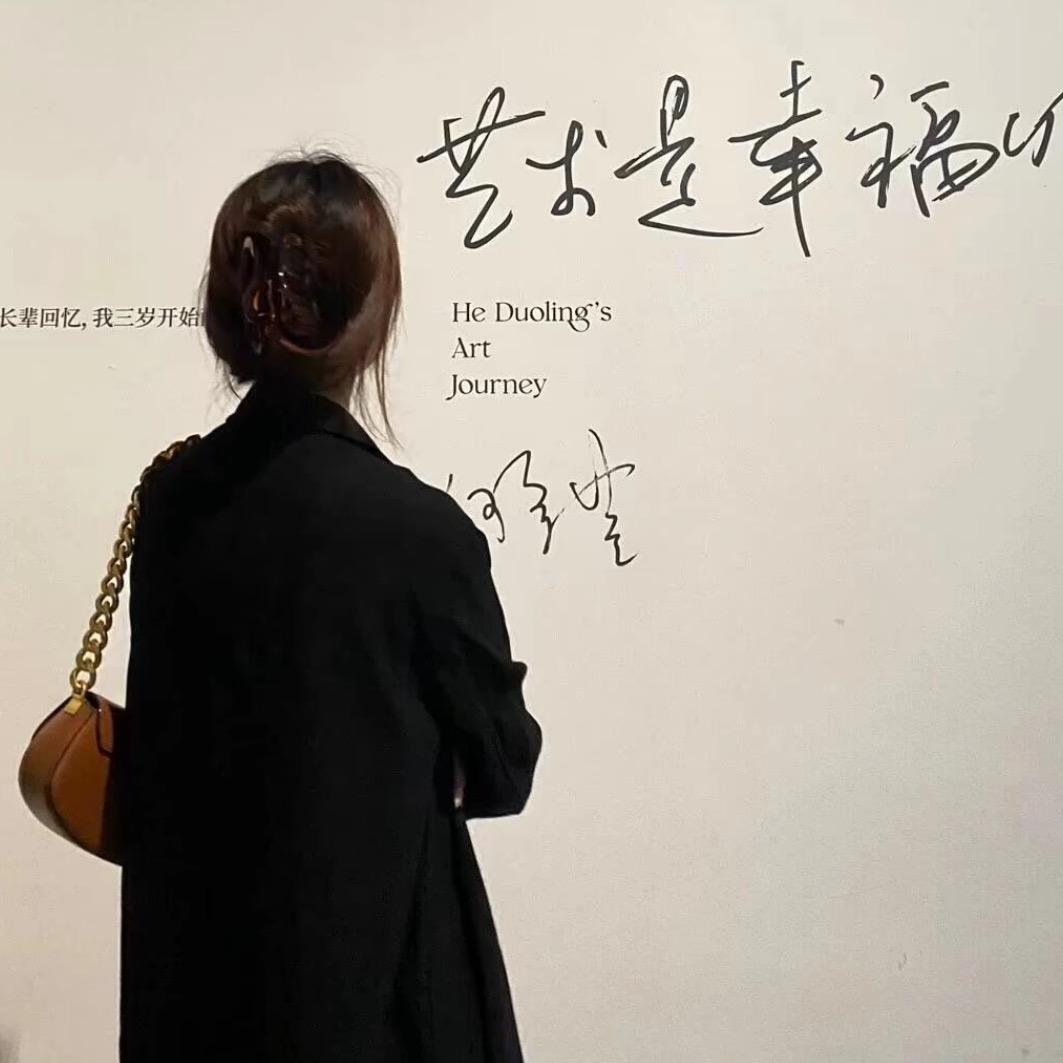 艺术是幸福
长辈回忆, 我三岁开始
He Duoling's
Art
Journey
何多苓